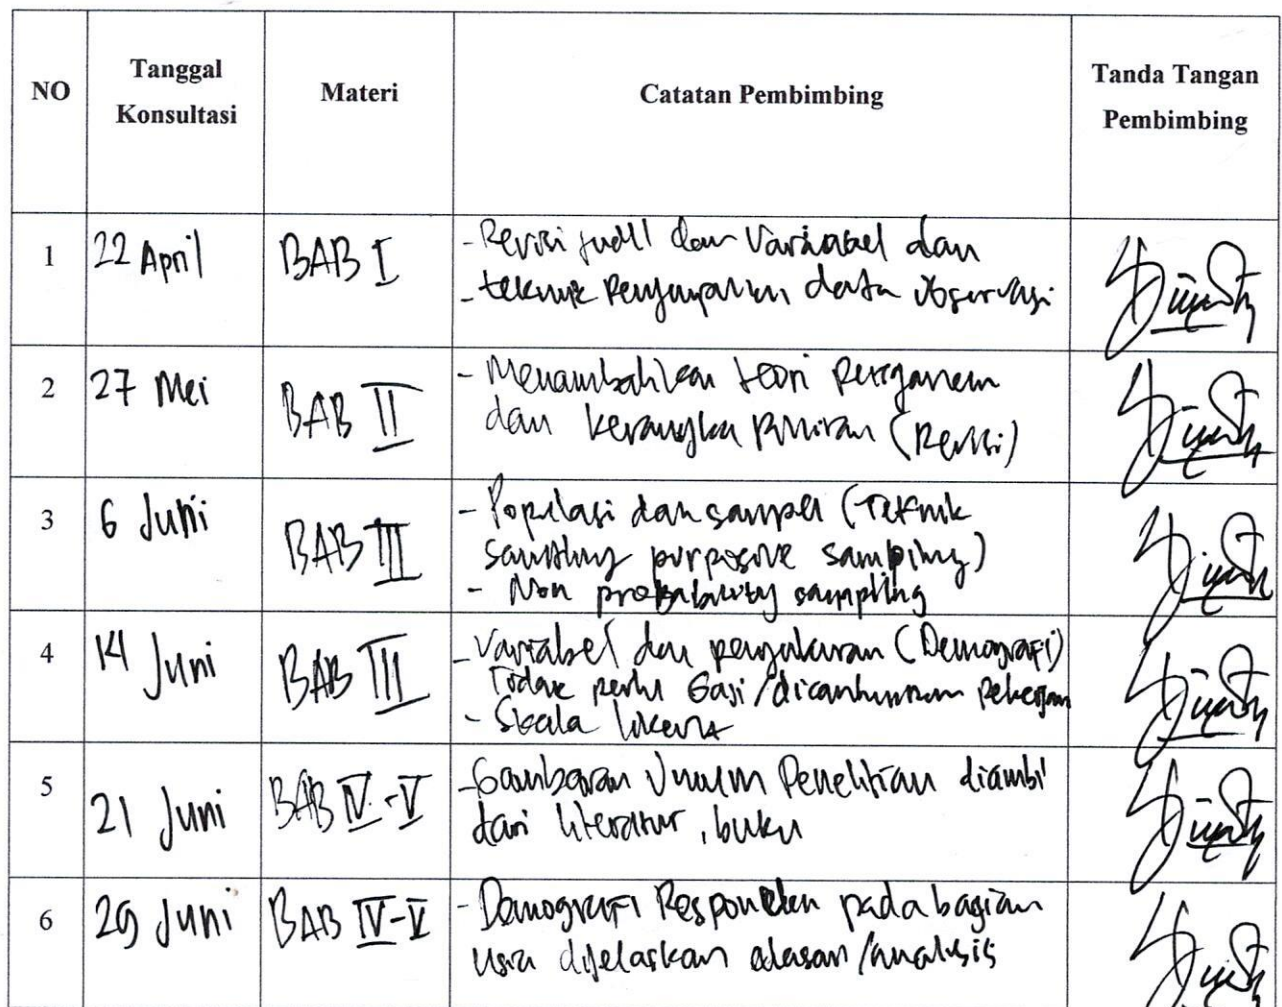 NO
Tanggal Konsultasi
Materi
Catatan Pembimbing
Tanda Tangan Pembimbing
1
22 April
BAB I
- Revisi judul dan Variabel dan
- teknik Pengumpulan data observasi
2
27 Mei
BAB II
- Menambahkan teori
dan kerangka Pikiran (Revisi)
3
6 Juni
BAB III
- Populasi dan sampel (Teknik
sampling purposive sampling)
- Non probability sampling
4
14 Juni
BAB III
- Variabel dan pengukuran (Demografi)
Tidak perlu Gaji / dicantumkan Pekerjaan
- Skala likert
5
21 Juni
BAB IV - V
- Gambaran Umum Penelitian diambil
dari literatur, buku
6
29 Juni
BAB IV-V
- Demografi Responden pada bagian
usia dijelaskan alasan / analisis